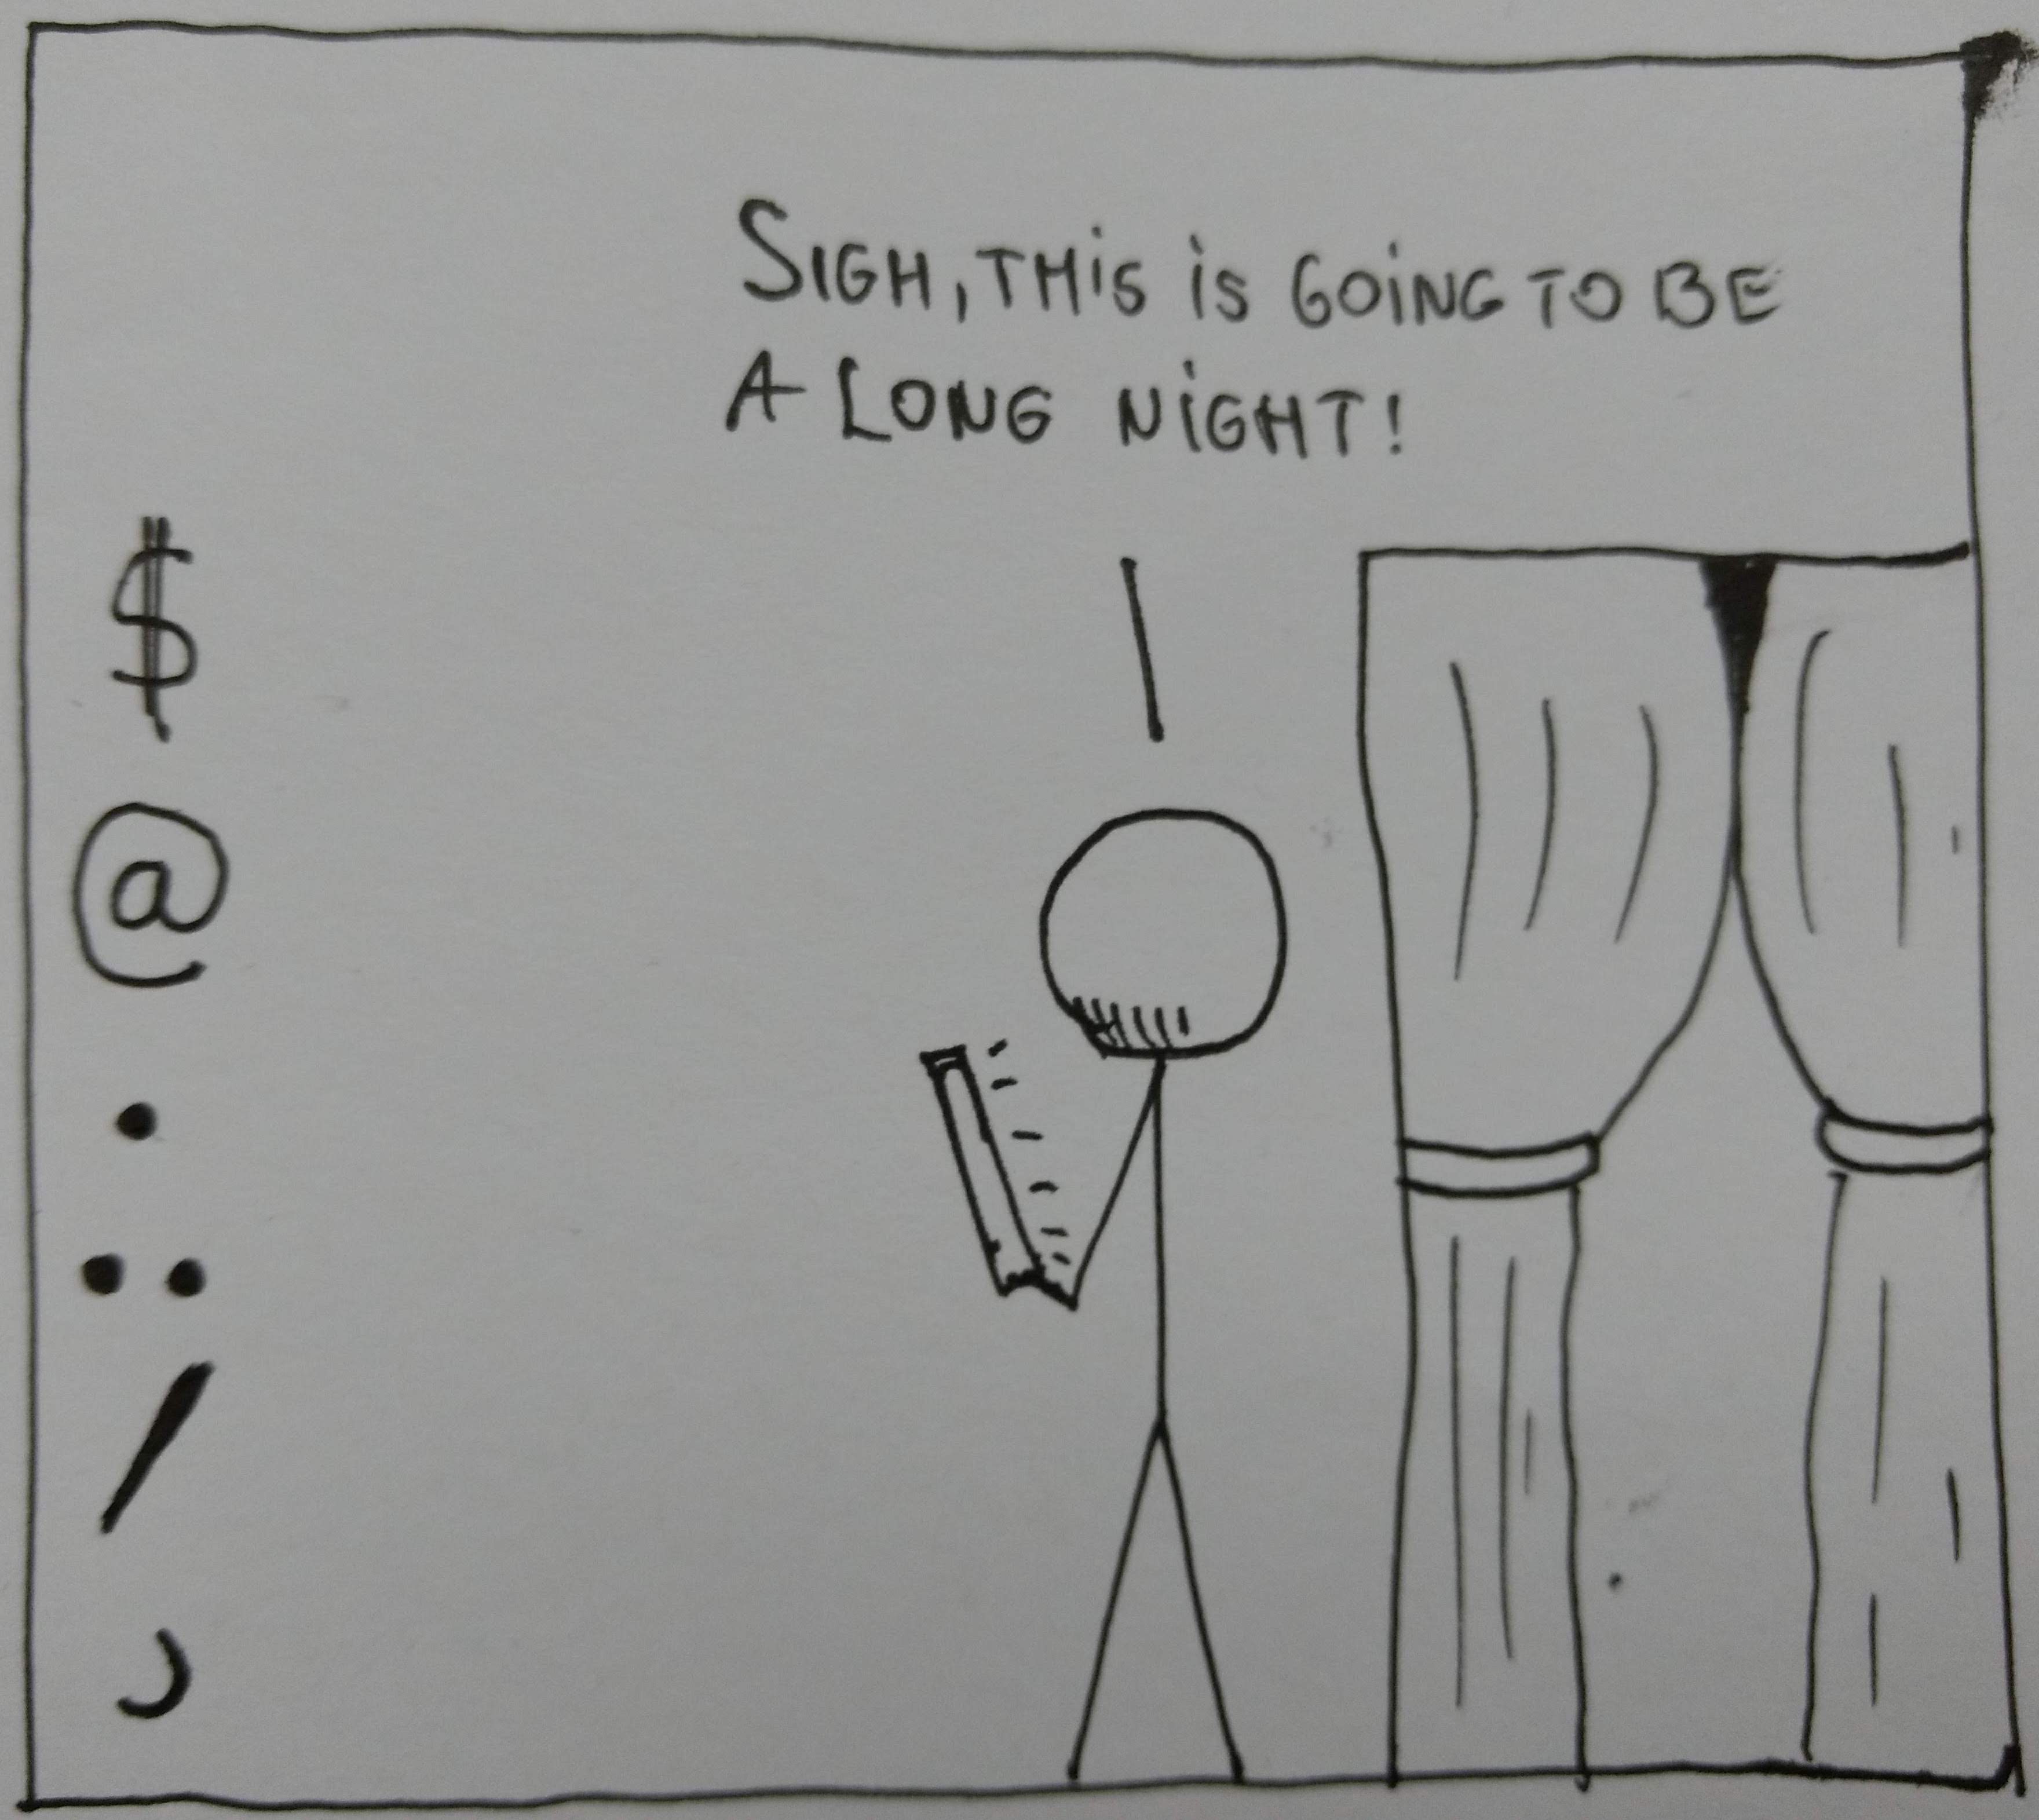 SIGH, THiS iS GOiNG TO BE
A LONG NiGHT!
$
@
.
..
/
)